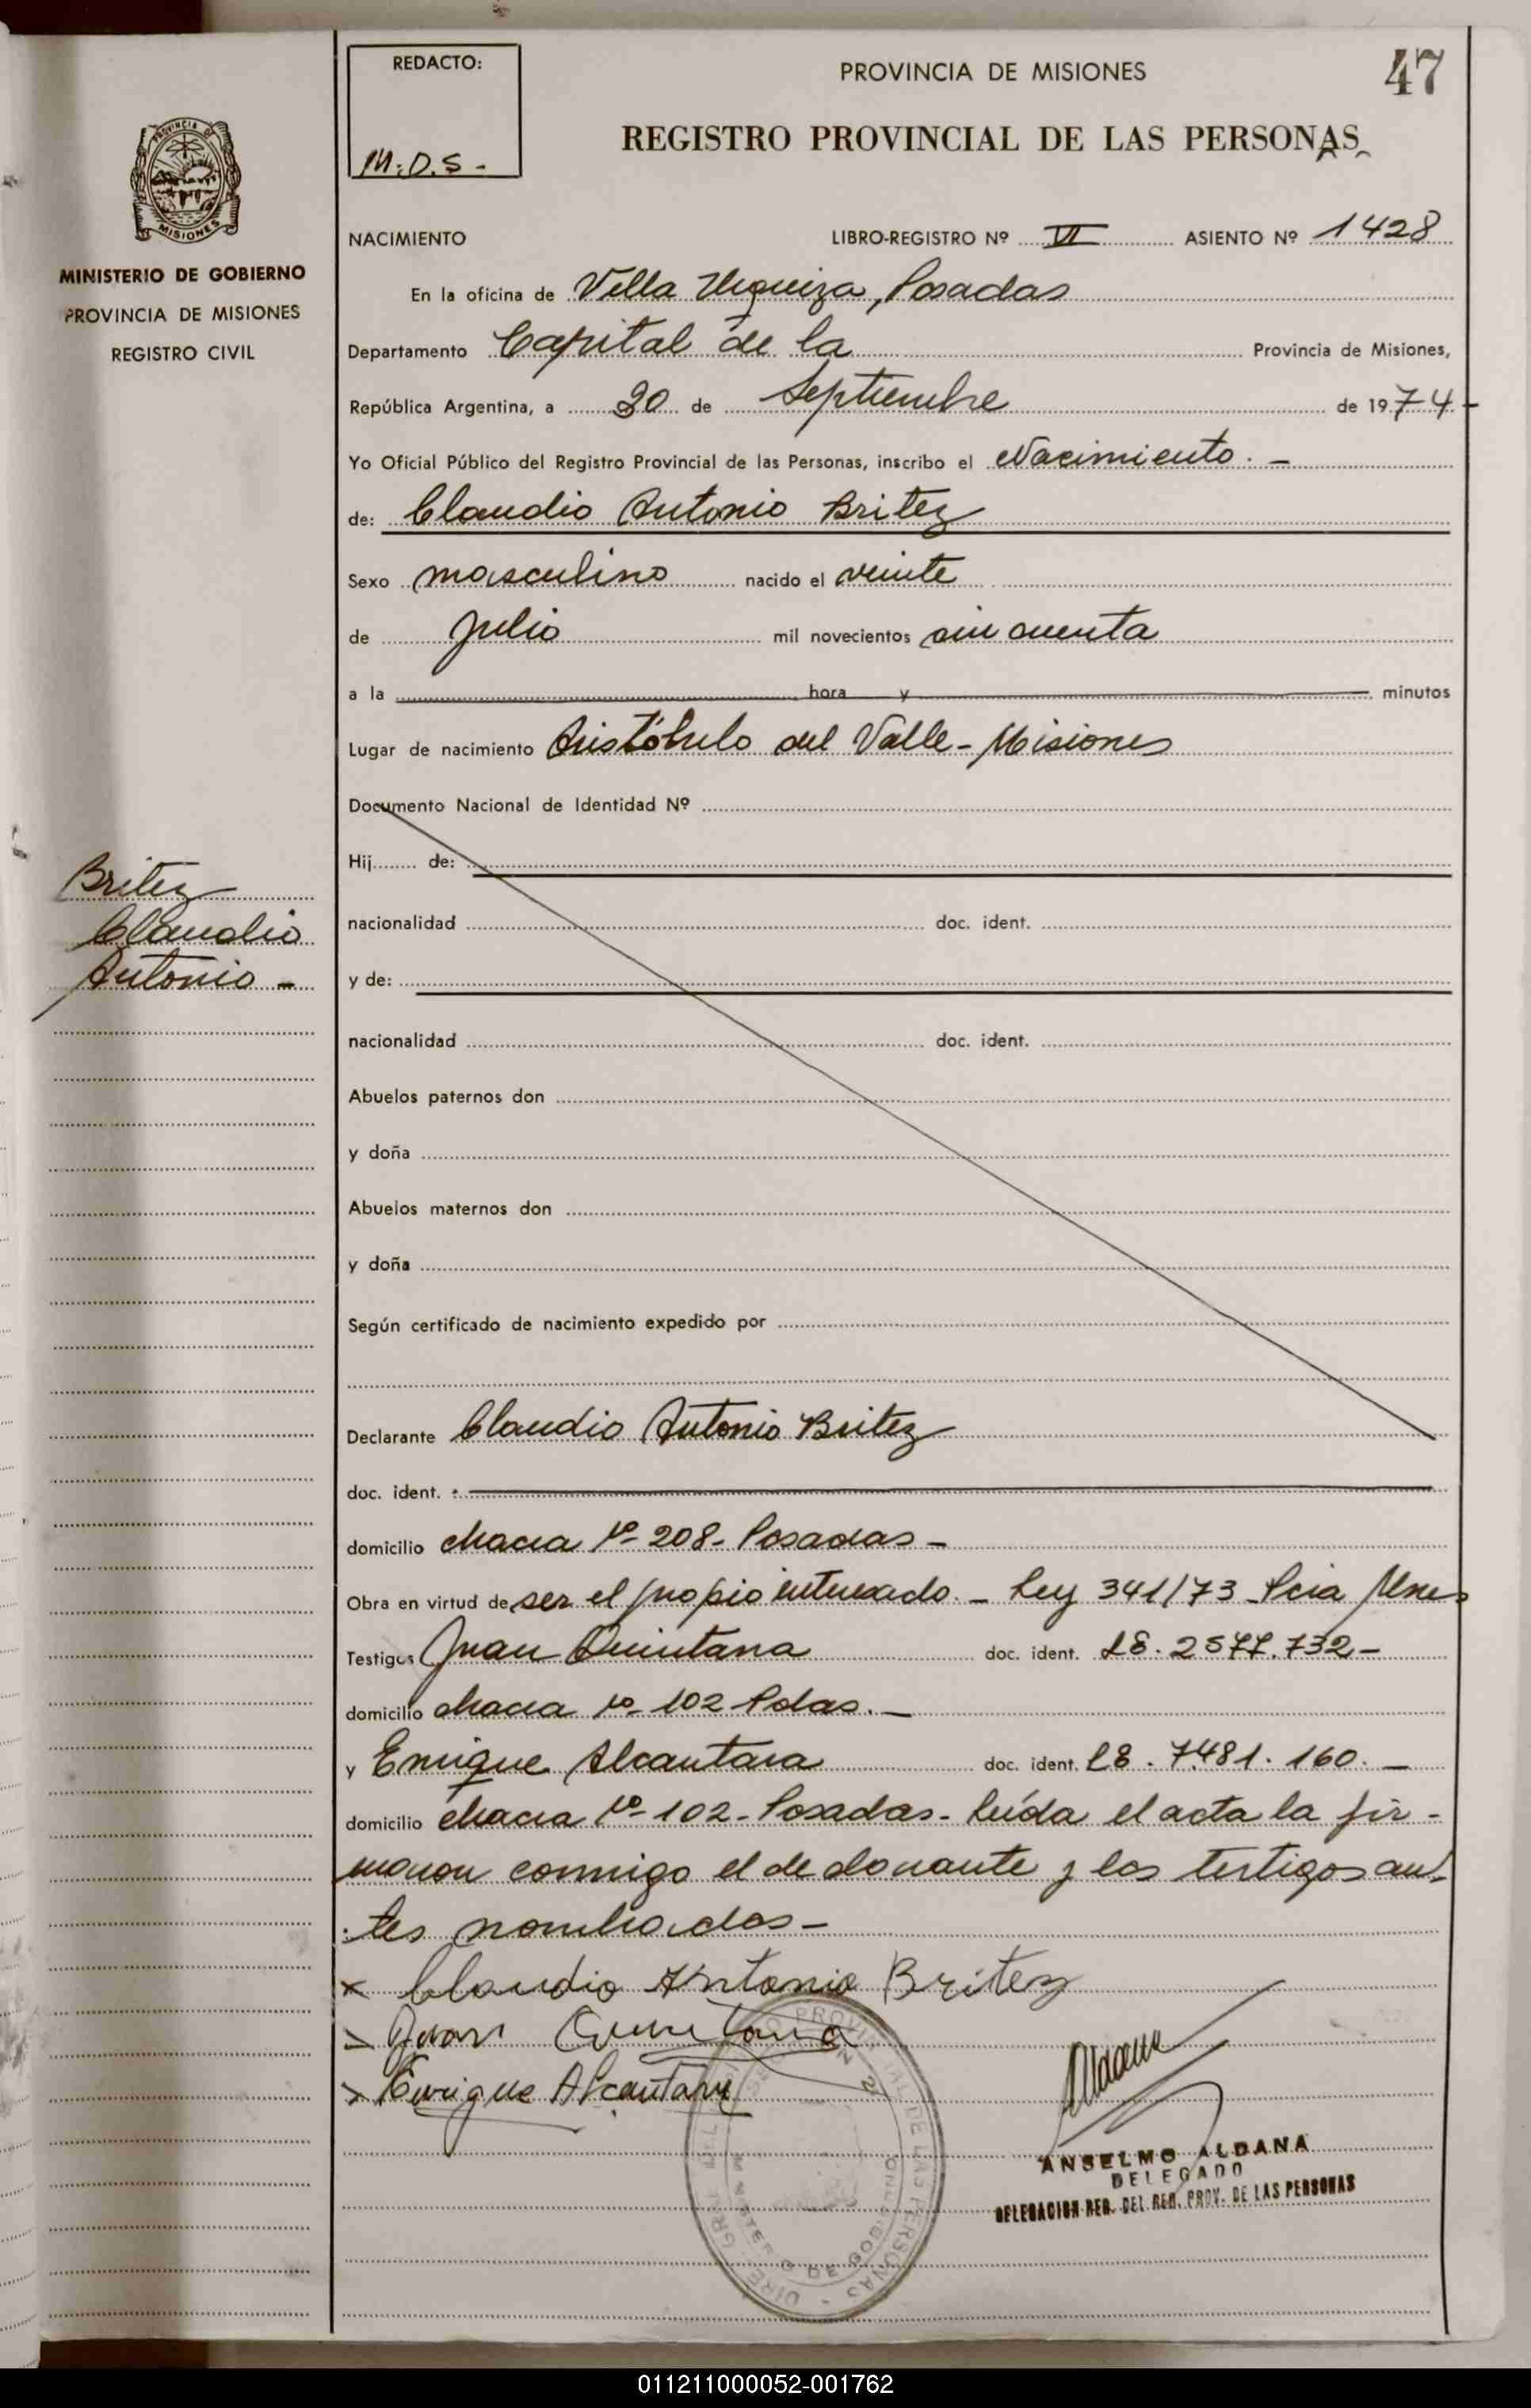 47
REDACTO:
M.D.S -
PROVINCIA DE MISIONES
REGISTRO PROVINCIAL DE LAS PERSONAS
MISIONES
MINISTERIO DE GOBIERNO
PROVINCIA DE MISIONES
REGISTRO CIVIL
NACIMIENTO LIBRO-REGISTRO Nº VI ASIENTO Nº 1428
En la oficina de Villa Urquiza, Posadas
Departamento Capital de la Provincia de Misiones,
República Argentina, a de Septiembre de 1974
Yo Oficial Público del Registro Provincial de las Personas, inscribo el Nacimiento. -
de: Claudio Antonio Britez
Sexo masculino nacido el veinte
de julio mil novecientos cincuenta
a la hora y minutos
Lugar de nacimiento Aristóbulo del Valle - Misiones
Documento Nacional de Identidad Nº
Hij de:
Britez
Claudio
Antonio -
nacionalidad doc. ident.
y de:
nacionalidad doc. ident.
Abuelos paternos don
y doña
Abuelos maternos don
y doña
Según certificado de nacimiento expedido por
Declarante Claudio Antonio Britez
doc. ident.
domicilio chacra Nº 208 - Posadas -
Obra en virtud de ser el propio interesado. - Ley 341/73 Pcia Mnes
Testigos Juan Quintana doc. ident.
domicilio chacra Nº 102 Pdas. -
y Enrique Alcantara doc. ident. 7.481.160. -
domicilio chacra Nº 102 - Posadas - Leída el acta la fir-
maron conmigo el declarante y los testigos an-
tes nombrados -
x Claudio Antonio Britez
Juan Quintana
Enrique Alcantara
ANSELMO ALDANA
DELEGADO
DELEGACION REG. DEL REG. PROV. DE LAS PERSONAS
011211000052-001762